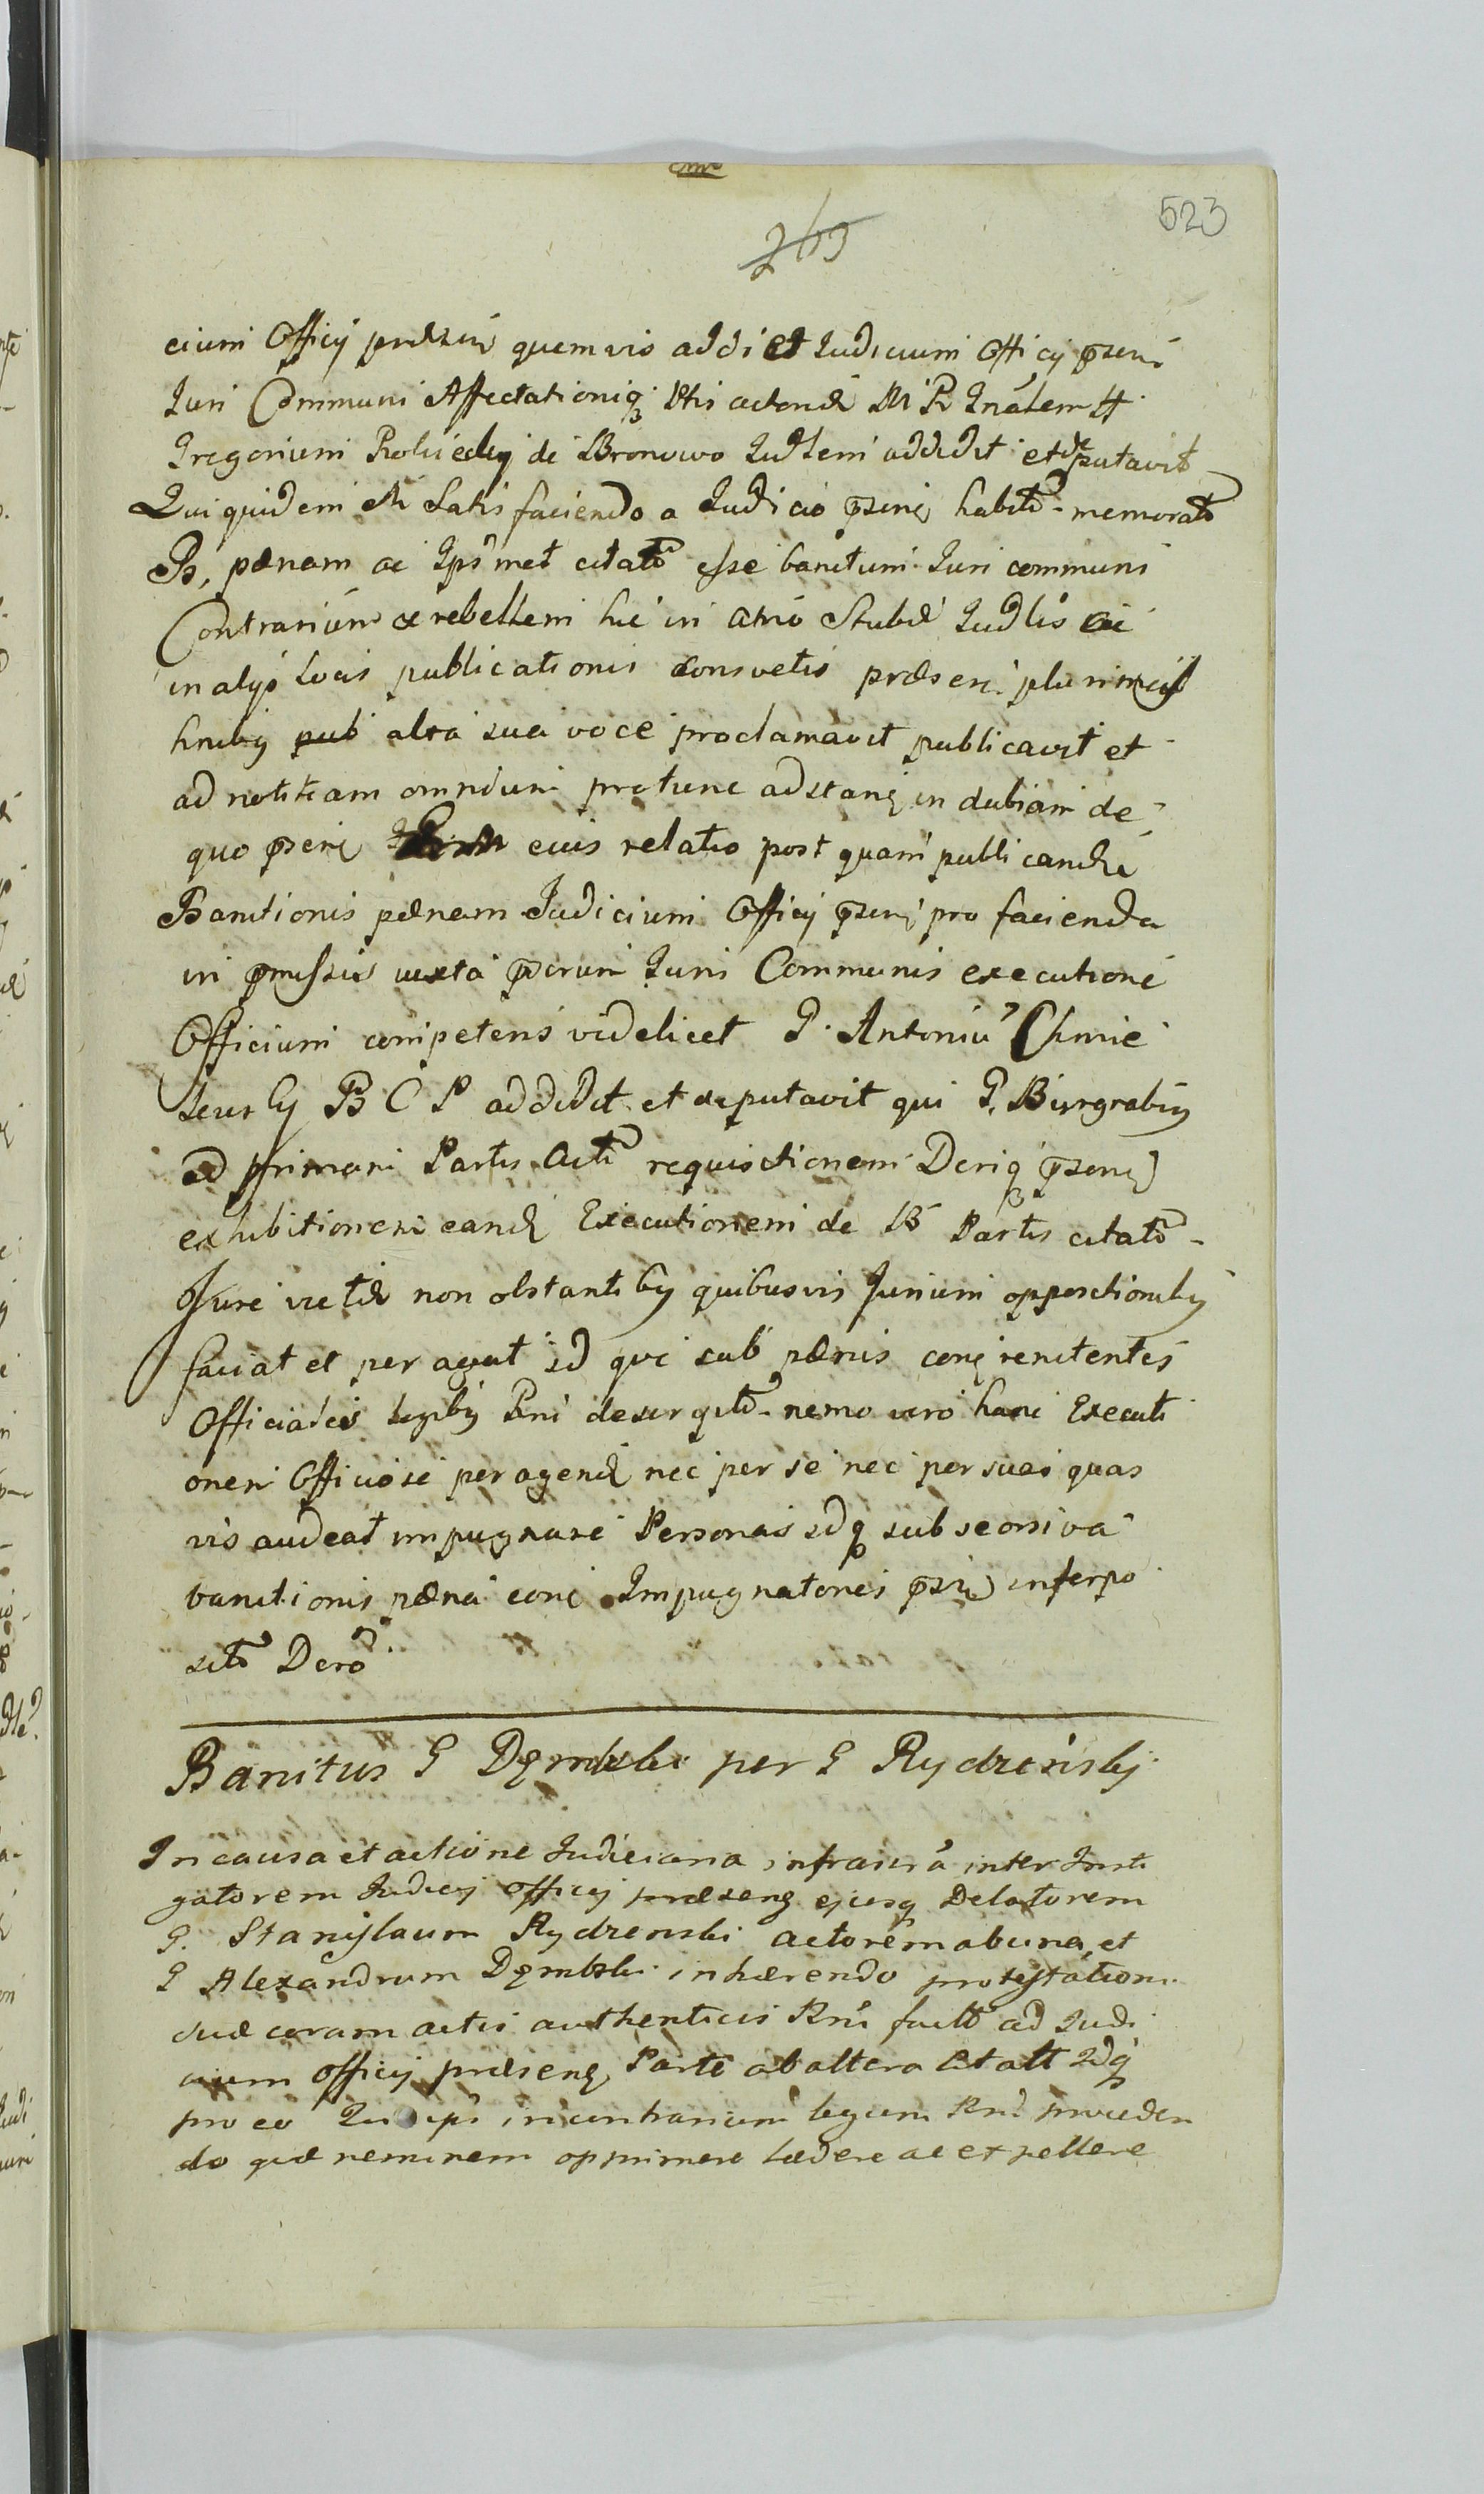 523
269
cium Officij præsens quemvis addi et Judicium Officij psens
Juri Communi Affectationiq Ptis actoreæ M R Gnalem H
Gregorium de Bronowo Judlem addidit et deputavit
Qui quidem M Satisfaciendo a Judicio psenę habito memorato
B, pænam ac Ipsmet citato esse banitum Juri communi
Contrarium ac rebellem hic in atrio Stubæ Judlis ac
in alys Locis publicationis consvetis præsen plurimis
hnibq pub alta sua voce proclamavit publicavit et
ad notitiam omnium protunc adstanę indubiam de
quo psenę eius relatio post quam publicandæ
Banitionis pænam Judicium Officij psenę pro facienda
in pmissis iuxta pscrum Juris Communis executione
Officium competens videlicet G. Antoniu Chmie
lews ly B C P addidit et deputavit qui G. Burgrabiq
ad primam Partis Act requisitionem Deriq psenę
exhibitionem eandę Executionem de B Partis citato
Jure victæ non obstantibq quibusvis Jurium oppositionibq
faciat et peragat id qve sub pænis conę renitentes
Officiales legibq Rni descriptis nemo vero hanc Executi
onem Officiose peragendę nec per se nec per suas quas
vis audeat impugnare Personas idq sub seorsiva
banitionis pæna conę Impugnatores psenę interpo
sito Dero
Banitus G Dęmbski per G Rydzeński
In causa et actione Judiciaria infrascrā inter Insti
gatorem Judicij officij præsenę ejusq Delatorem
G. Stanislaum Rydzenski actorem ab una, et
G Alexandrum Dęmbski inhærendo protestationi
suæ coram actis authenticis Rni fact ad Judi
cium officij præsenę Parte ab altera Citatt Idq
pro eo Quia ips in contrarium legum Rni proceden
do quæ neminem opprimere lædere ac expellere